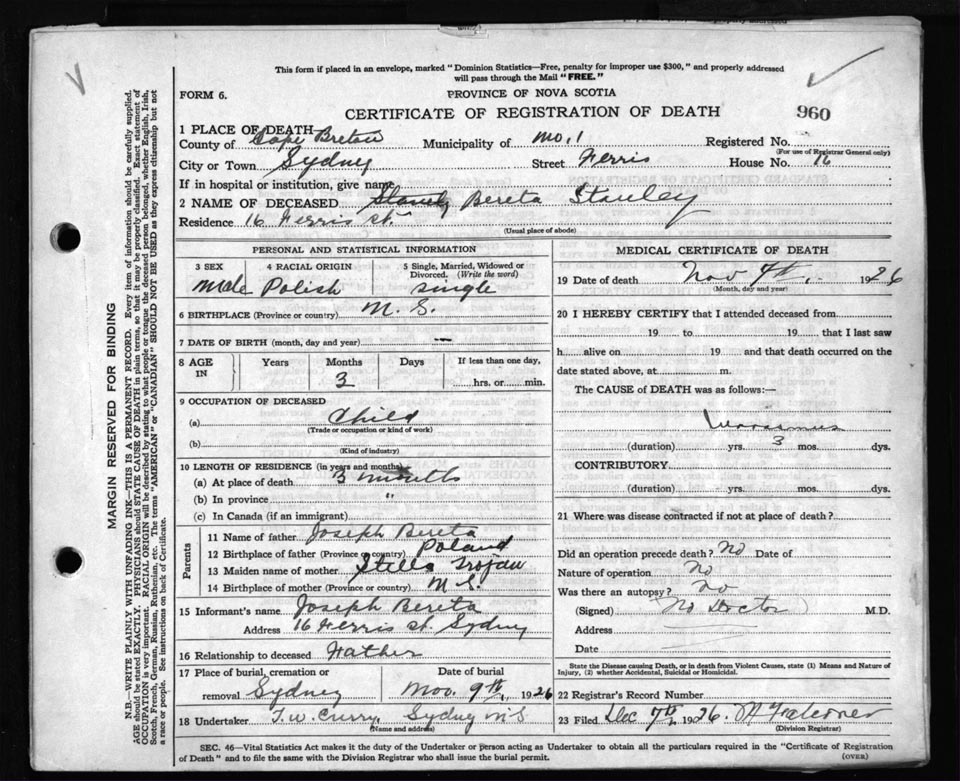 This form if placed in an envelope, marked "Dominion Statistics—Free, penalty for improper use $300," and properly addressed
will pass through the Mail "FREE."
FORM 6.
PROVINCE OF NOVA SCOTIA
CERTIFICATE OF REGISTRATION OF DEATH
960
1 PLACE OF DEATH
County of Cape Breton Municipality of No. 1 Registered No.
(For use of Registrar General only)
City or Town Sydney Street Ferris House No. 16
If in hospital or institution, give name
2 NAME OF DECEASED Bereta Stanley
Residence 16 Ferris St.
(Usual place of abode)
PERSONAL AND STATISTICAL INFORMATION
3 SEX 4 RACIAL ORIGIN 5 Single, Married, Widowed or
Divorced. (Write the word)
Male Polish Single
6 BIRTHPLACE (Province or country) N. S.
7 DATE OF BIRTH (month, day and year) —
8 AGE IN Years Months Days If less than one day,
3 hrs. or min.
9 OCCUPATION OF DECEASED
(a) Child
(Trade or occupation or kind of work)
(b)
(Kind of industry)
10 LENGTH OF RESIDENCE (in years and months)
(a) At place of death 3 months
(b) In province "
(c) In Canada (if an immigrant)
Parents
11 Name of father Joseph Bereta
12 Birthplace of father (Province or country) Poland
13 Maiden name of mother Stella Trojan
14 Birthplace of mother (Province or country) N. S.
15 Informant's name Joseph Bereta
Address 16 Ferris St. Sydney
16 Relationship to deceased Father
17 Place of burial, cremation or Date of burial
removal Sydney Nov. 9th, 1926
18 Undertaker T. W. Curry, Sydney N S
(Name and address)
MEDICAL CERTIFICATE OF DEATH
19 Date of death Nov 7th, 1926
(Month, day and year)
20 I HEREBY CERTIFY that I attended deceased from
19 to 19 that I last saw
h alive on 19 and that death occurred on the
date stated above, at m.
The CAUSE of DEATH was as follows:—
Marasmus
(duration) yrs. 3 mos. dys.
CONTRIBUTORY
(duration) yrs. mos. dys.
21 Where was disease contracted if not at place of death?
Did an operation precede death? No Date of
Nature of operation No
Was there an autopsy? No
(Signed) (No Doctor) M.D.
Address
Date
State the Disease causing Death, or in death from Violent Causes, state (1) Means and Nature of
Injury, (2) whether Accidental, Suicidal or Homicidal.
22 Registrar's Record Number
23 Filed Dec 7th, 1926
(Division Registrar)
SEC. 46—Vital Statistics Act makes it the duty of the Undertaker or person acting as Undertaker to obtain all the particulars required in the "Certificate of Registration
of Death" and to file the same with the Division Registrar who shall issue the burial permit.
(OVER)
MARGIN RESERVED FOR BINDING
N.B.—WRITE PLAINLY WITH UNFADING INK—THIS IS A PERMANENT RECORD. Every item of information should be carefully supplied.
AGE should be stated EXACTLY. PHYSICIANS should STATE CAUSE OF DEATH in plain terms, so that it may be properly classified. Exact statement of
OCCUPATION is very important. RACIAL ORIGIN will be described by stating to what people or tongue the deceased person belonged, whether English, Irish,
Scotch, French, German, Russian, Ruthenian, etc. The terms "AMERICAN" or "CANADIAN" SHOULD NOT BE USED as they express citizenship but not
a race or people. See instructions on back of Certificate.